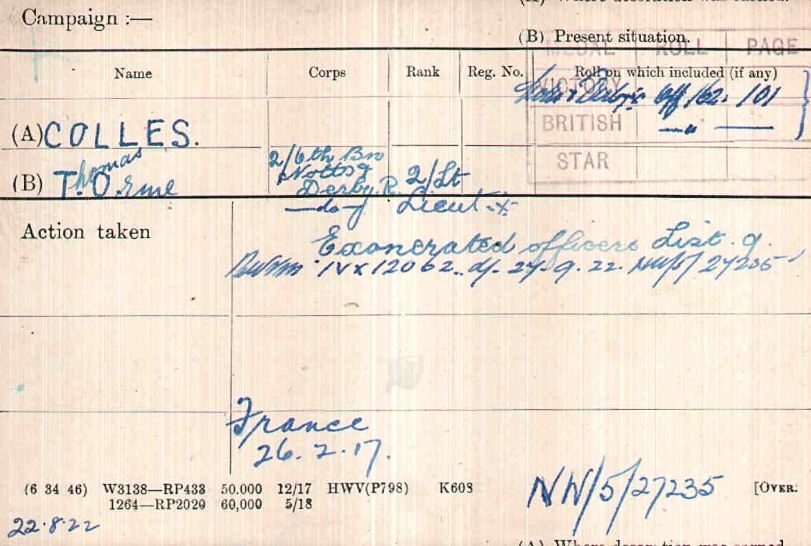 (A) Where decoration was earned.
Campaign :—
(B) Present situation.
MEDAL ROLL PAGE
Name Corps Rank Reg. No. Roll on which included (if any)
VICTORY Off/62. 101
(A) COLLES.
BRITISH —"— ——
(B) Thomas Orme
2/6th Bn
Notts &
Derby. R. 2/Lt
STAR
—do— Lieut.
Action taken
Exonerated officers List. 9.
IVX 12062. d/- 27-9.22. NW/5/27235
France
26.2.17.
(6 34 46) W3138—RP433 50,000 12/17 HWV(P798) K608
1264—RP2029 60,000 5/18
NW/5/27235 [OVER.
22.8.22
(A) Where decoration was earned